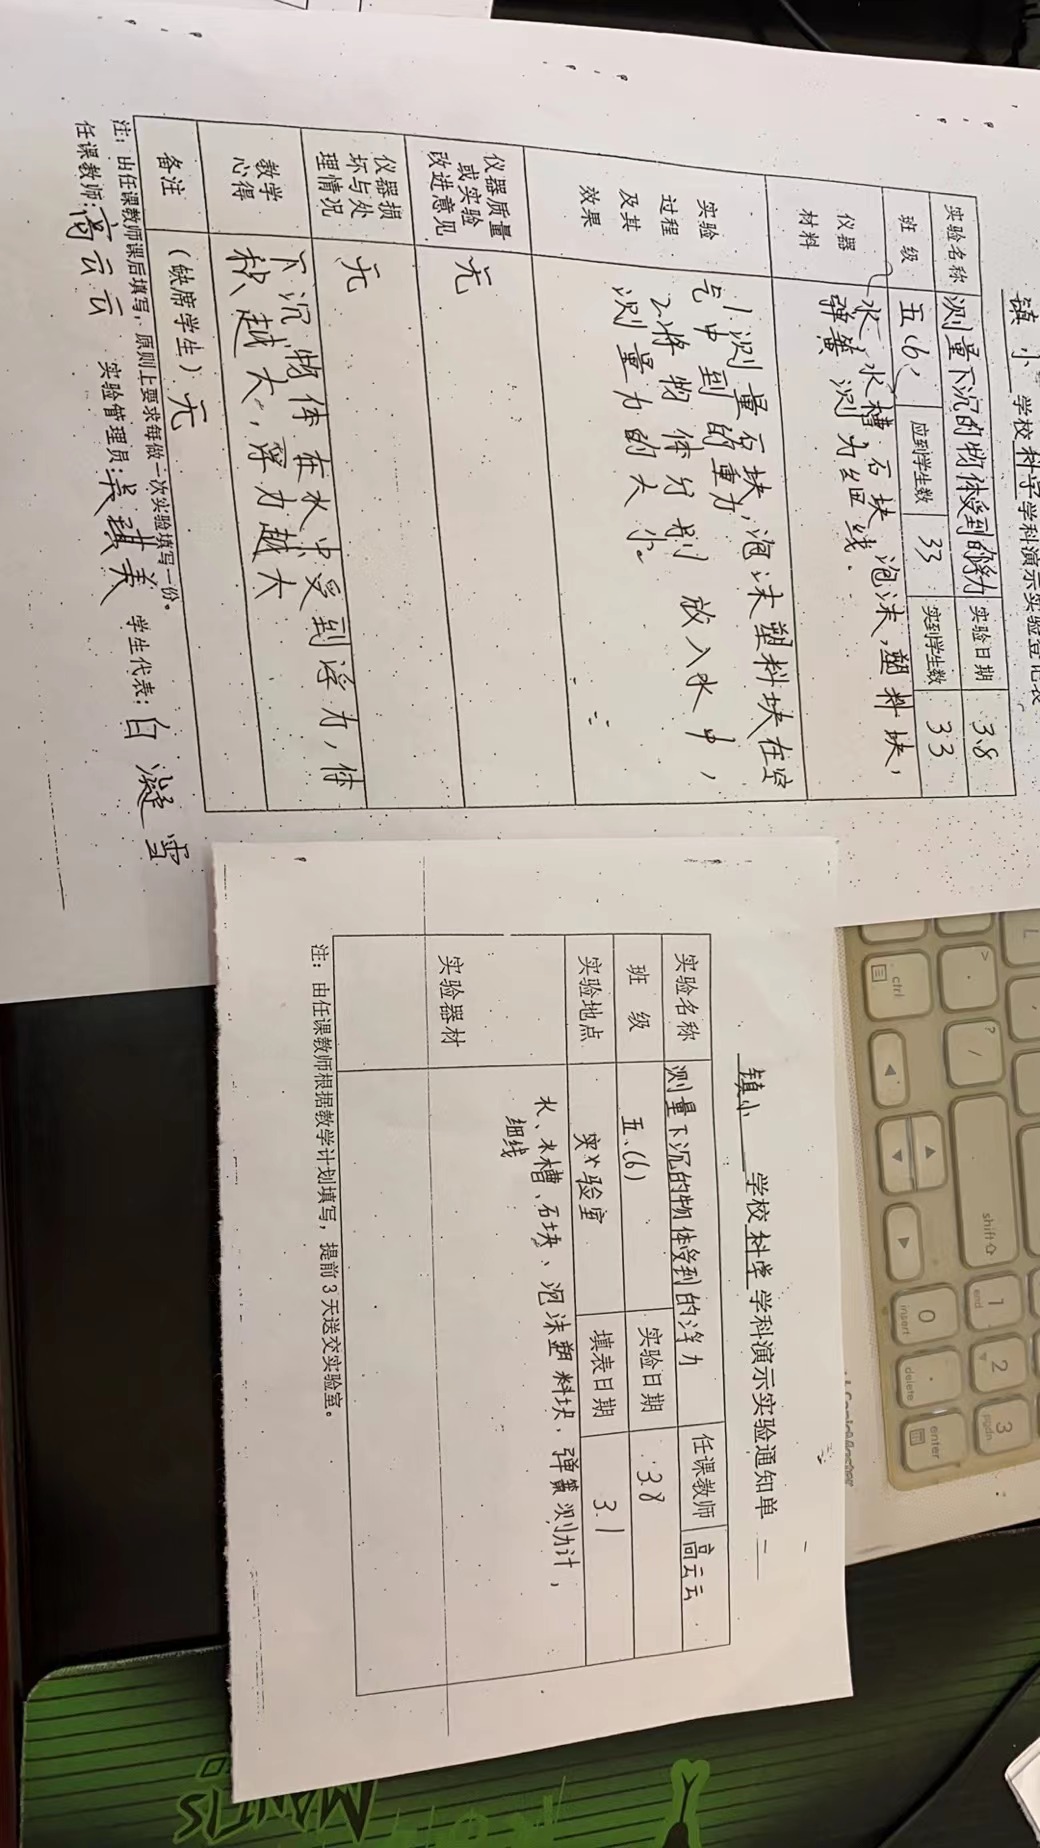 镇小 学校科学学科演示实验登记表
实验名称 测量下沉的物体受到的浮力 实验日期 3.8
班 级 五(6) 应到学生数 33 实到学生数 33
仪器材料 水,水槽,石块,泡沫,塑料块,
弹簧测力 细线.
实验过程及其效果 1.测量石块,泡沫塑料块在空
气中到的重力,
2.将物体分别放入水中,
测量力的大小。
仪器质量或实验改进意见 无
仪器损坏与处理情况 无
教学心得 下沉物体在水中受到浮力,体
积越大,浮力越大
备注 (缺席学生)无
注:由任课教师课后填写,原则上要求每做一次实验填写一份。
任课教师:高云云 实验管理员: 学生代表:白凝雪
镇小 学校科学学科演示实验通知单
实验名称 测量下沉的物体受到的浮力 任课教师 高云云
班 级 五.(6) 实验日期 3.8
实验地点 实验室 填表日期 3.1
实验器材 水、水槽、石块、泡沫塑料块、弹簧测力计,
细线
注:由任课教师根据教学计划填写,提前3天送交实验室。
ctrl
shift
1
end
2
3
pgdn
0
insert
delete
enter
CoolerMaster
MANTIS